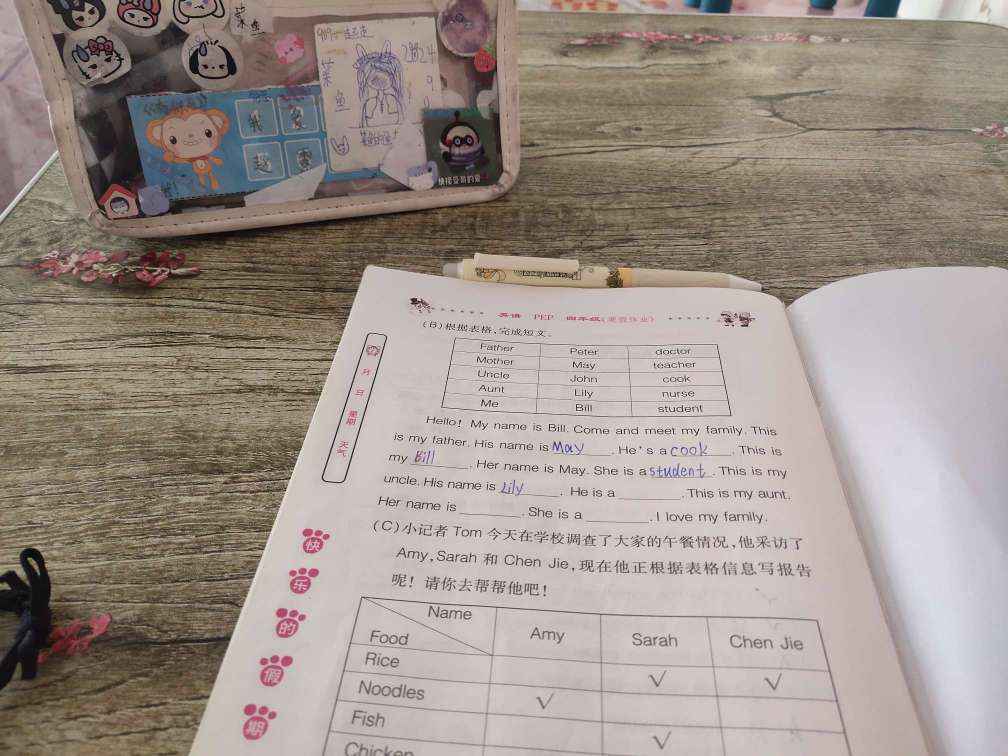 2824
9
菜
鱼
我 爱
英语 PEP 四年级(暑假作业)
(B)根据表格,完成短文。
Father Peter doctor
Mother May teacher
Uncle John cook
Aunt Lily nurse
Me Bill student
月
日
星期
天气
Hello! My name is Bill. Come and meet my family. This
is my father. His name is May. He's a cook. This is
my Bill. Her name is May. She is a student. This is my
uncle. His name is Lily. He is a ______. This is my aunt.
Her name is ______. She is a ______. I love my family.
(C)小记者 Tom 今天在学校调查了大家的午餐情况,他采访了
Amy,Sarah 和 Chen Jie,现在他正根据表格信息写报告
呢!请你去帮帮他吧!
快
乐
的
假
期
Name
Food Amy Sarah Chen Jie
Rice √ √
Noodles √
Fish √
Chicken